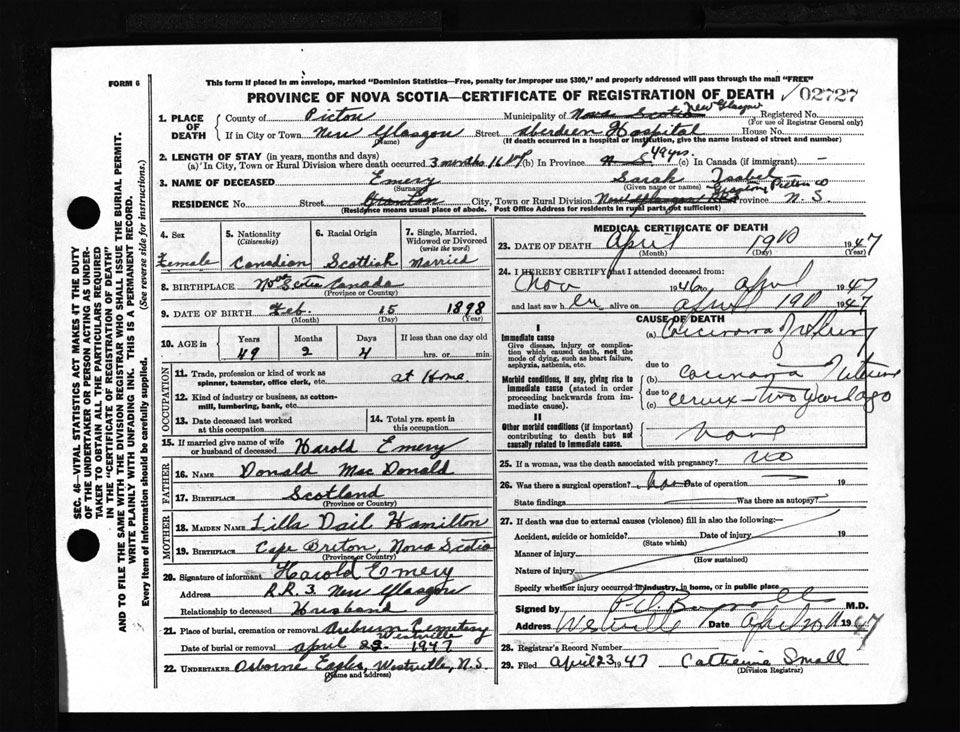 FORM 6
This form if placed in an envelope, marked "Dominion Statistics—Free, penalty for improper use $300," and properly addressed will pass through the mail "FREE"
PROVINCE OF NOVA SCOTIA—CERTIFICATE OF REGISTRATION OF DEATH 02727
1. PLACE OF DEATH
County of Pictou Municipality of Nova Scotia New Glasgow Registered No.
(For use of Registrar General only)
If in City or Town New Glasgow Street Aberdeen Hospital House No.
(Name) (If death occurred in a hospital or institution, give the name instead of street and number)
2. LENGTH OF STAY (in years, months and days)
(a) In City, Town or Rural Division where death occurred 3 months 16 (b) In Province N S 49 yrs (c) In Canada (if immigrant) —
3. NAME OF DECEASED Emery Sarah Isabel
(Surname) (Given name or names)
RESIDENCE No. Street Granton City, Town or Rural Division New Glasgow Granton, Pictou Co Province N. S.
(Residence means usual place of abode. Post Office Address for residents in rural parts not sufficient)
4. Sex Female
5. Nationality (Citizenship) Canadian
6. Racial Origin Scottish
7. Single, Married, Widowed or Divorced (write the word) Married
8. BIRTHPLACE Nova Scotia Canada
(Province or Country)
9. DATE OF BIRTH Feb. 15 1898
(Month) (Day) (Year)
10. AGE in Years Months Days If less than one day old
49 2 4 hrs. or min.
OCCUPATION
11. Trade, profession or kind of work as spinner, teamster, office clerk, etc. at Home
12. Kind of industry or business, as cotton-mill, lumbering, bank, etc.
13. Date deceased last worked at this occupation
14. Total yrs. spent in this occupation
15. If married give name of wife or husband of deceased Harold Emery
FATHER
16. NAME Donald MacDonald
17. BIRTHPLACE Scotland
(Province or Country)
MOTHER
18. MAIDEN NAME Lilla Dail Hamilton
19. BIRTHPLACE Cape Breton, Nova Scotia
(Province or Country)
20. Signature of informant Harold Emery
Address R.R. 3. New Glasgow
Relationship to deceased Husband
21. Place of burial, cremation or removal Auburn Cemetery Westville
Date of burial or removal april 23 1947
22. UNDERTAKER Osborne Eagles, Westville, N.S.
(Name and address)
MEDICAL CERTIFICATE OF DEATH
23. DATE OF DEATH April 19th 1947
(Month) (Day) (Year)
24. I HEREBY CERTIFY that I attended deceased from:
Nov 1946 to April 1947
and last saw her alive on April 19th 1947
CAUSE OF DEATH
I
Immediate cause
Give disease, injury or complication which caused death, not the mode of dying, such as heart failure, asphyxia, asthenia, etc.
(a) Carcinoma of Lung
due to
Morbid conditions, if any, giving rise to immediate cause (stated in order proceeding backwards from immediate cause).
(b) carcinoma Uterine
due to
(c) cervix — two years ago
II
Other morbid conditions (if important) contributing to death but not causally related to immediate cause.
None
25. If a woman, was the death associated with pregnancy? no
26. Was there a surgical operation? Date of operation — 19
State findings Was there an autopsy?
27. If death was due to external causes (violence) fill in also the following:—
Accident, suicide or homicide? Date of injury 19
(State which)
Manner of injury
(How sustained)
Nature of injury
Specify whether injury occurred in industry, in home, or in public place
Signed by M.D.
Address Westville Date April 20th 1947
28. Registrar's Record Number
29. Filed April 23 1947 Catherine Small
(Division Registrar)
SEC. 46—VITAL STATISTICS ACT MAKES IT THE DUTY
OF THE UNDERTAKER OR PERSON ACTING AS UNDER-
TAKER TO OBTAIN ALL THE PARTICULARS REQUIRED
IN THE "CERTIFICATE OF REGISTRATION OF DEATH"
AND TO FILE THE SAME WITH THE DIVISION REGISTRAR WHO SHALL ISSUE THE BURIAL PERMIT.
WRITE PLAINLY WITH UNFADING INK. THIS IS A PERMANENT RECORD.
Every item of information should be carefully supplied. (See reverse side for instructions.)